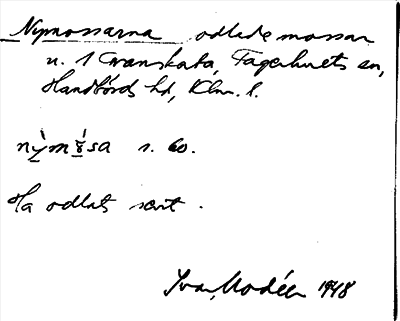 Nymossarna odlade mossar
u. 1 Svanskata, Fagerhults sn,
Handbörds hd, Klm. l.
nỳmósa s. 60.
Ha odlats sent.
Ivar Modéer 1948